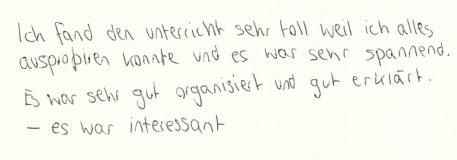 Ich fand den unterricht sehr toll weil ich alles
ausprobiren konnte und es war sehr spannend.
Es war sehr gut organisiert und gut erklärt.
– es war interessant